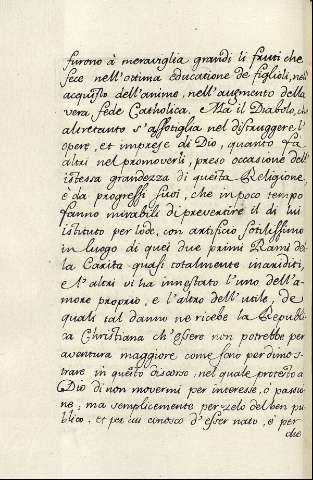 furono à meraviglia grandi li frutti che
fece nell'ottima educatione de figlioli, nell'
acquisto dell'anime, nell'augmento della
vera fede Catholica. Ma il Diabolo, ch
altretanto s'assotiglia nel distruggere l'
opere, et imprese di Dio, quanto fa
altri nel promoverli, preso occasione dell'
istessa grandezza di questa Religione
è da progressi suoi, che in poco tempo
fanno mirabili di prevertire il di lui
istituto per lode, con artificio sotilissimo
in luogo di quei due primi Rami del
la Carita quasi totalmente inariditi,
e l'altri vi ha innestato l'uno dell'a
more proprio, e l'altro dell'utile, de
quali tal danno ne ricebe la Republi
ca Christiana ch'essere non potrebbe per
aventura maggiore come sono per dimos
trare in questo discorso, nel quale protesto a
Dio di non movermi per interesse, ò passio
ne; ma semplicemente per zelo del ben pu
blico, et per cui conosco d'esser nato, e per
che